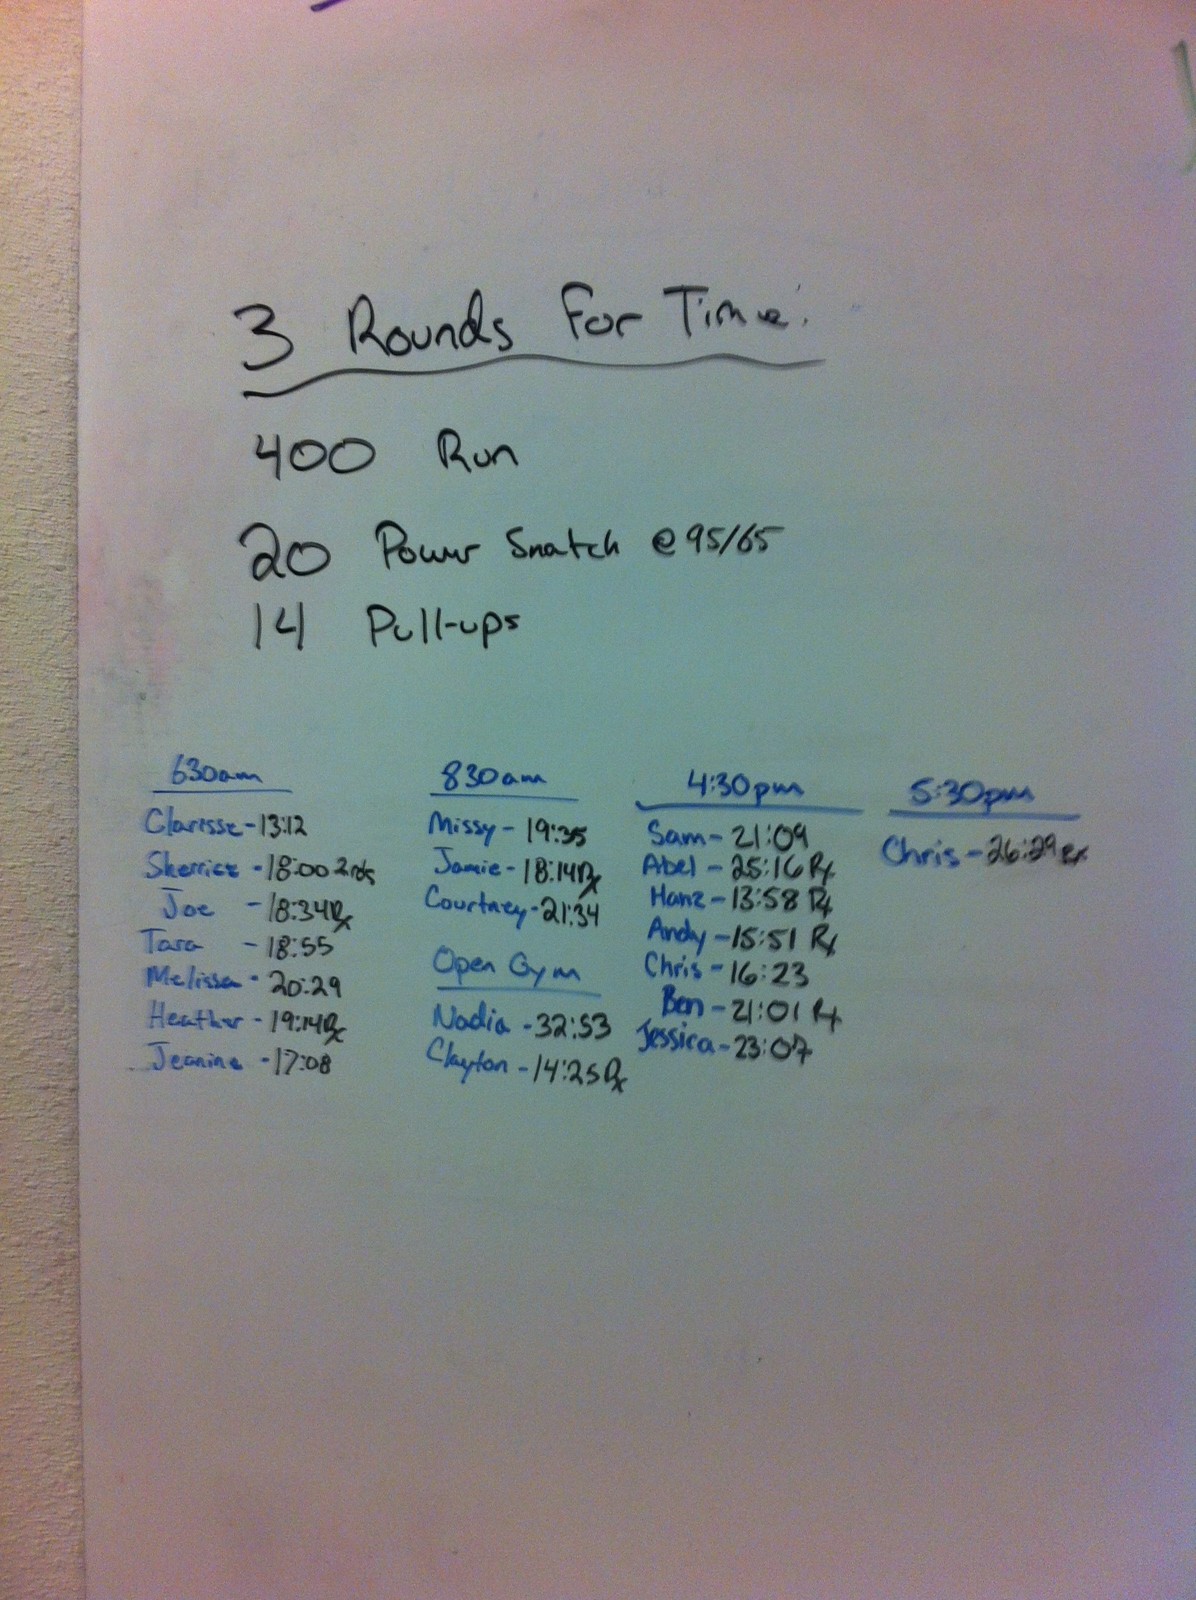 3 Rounds For Time:
400 Run
20 Power Snatch @ 95/65
14 Pull-ups
630am
Clarisse - 13:12
Sherrice - 18:00 2rds
Joe - 18:34 Rx
Tara - 18:55
Melissa - 20:29
Heather - 19:14 Rx
Jeanine - 17:08
830am
Missy - 19:35
Jamie - 18:14 Rx
Courtney - 21:34
Open Gym
Nadia - 32:53
Clayton - 14:25 Rx
4:30pm
Sam - 21:09
Abel - 25:16 Rx
Hanz - 13:58 Rx
Andy - 15:51 Rx
Chris - 16:23
Ben - 21:01 Rx
Jessica - 23:07
5:30pm
Chris - 26:29 Rx